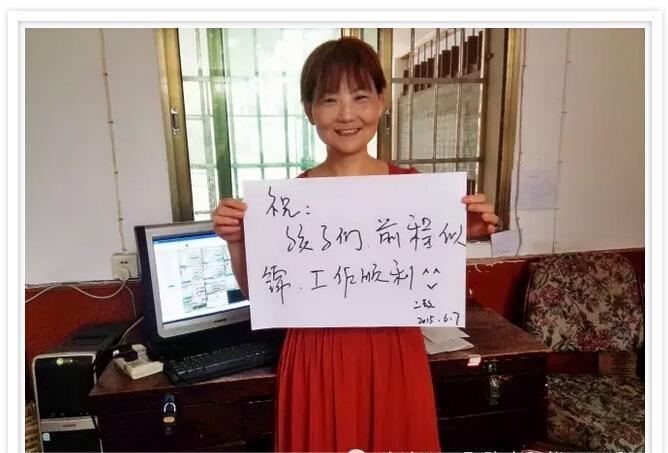 祝:
孩子们、前程似
锦、工作顺利
2015.6.7